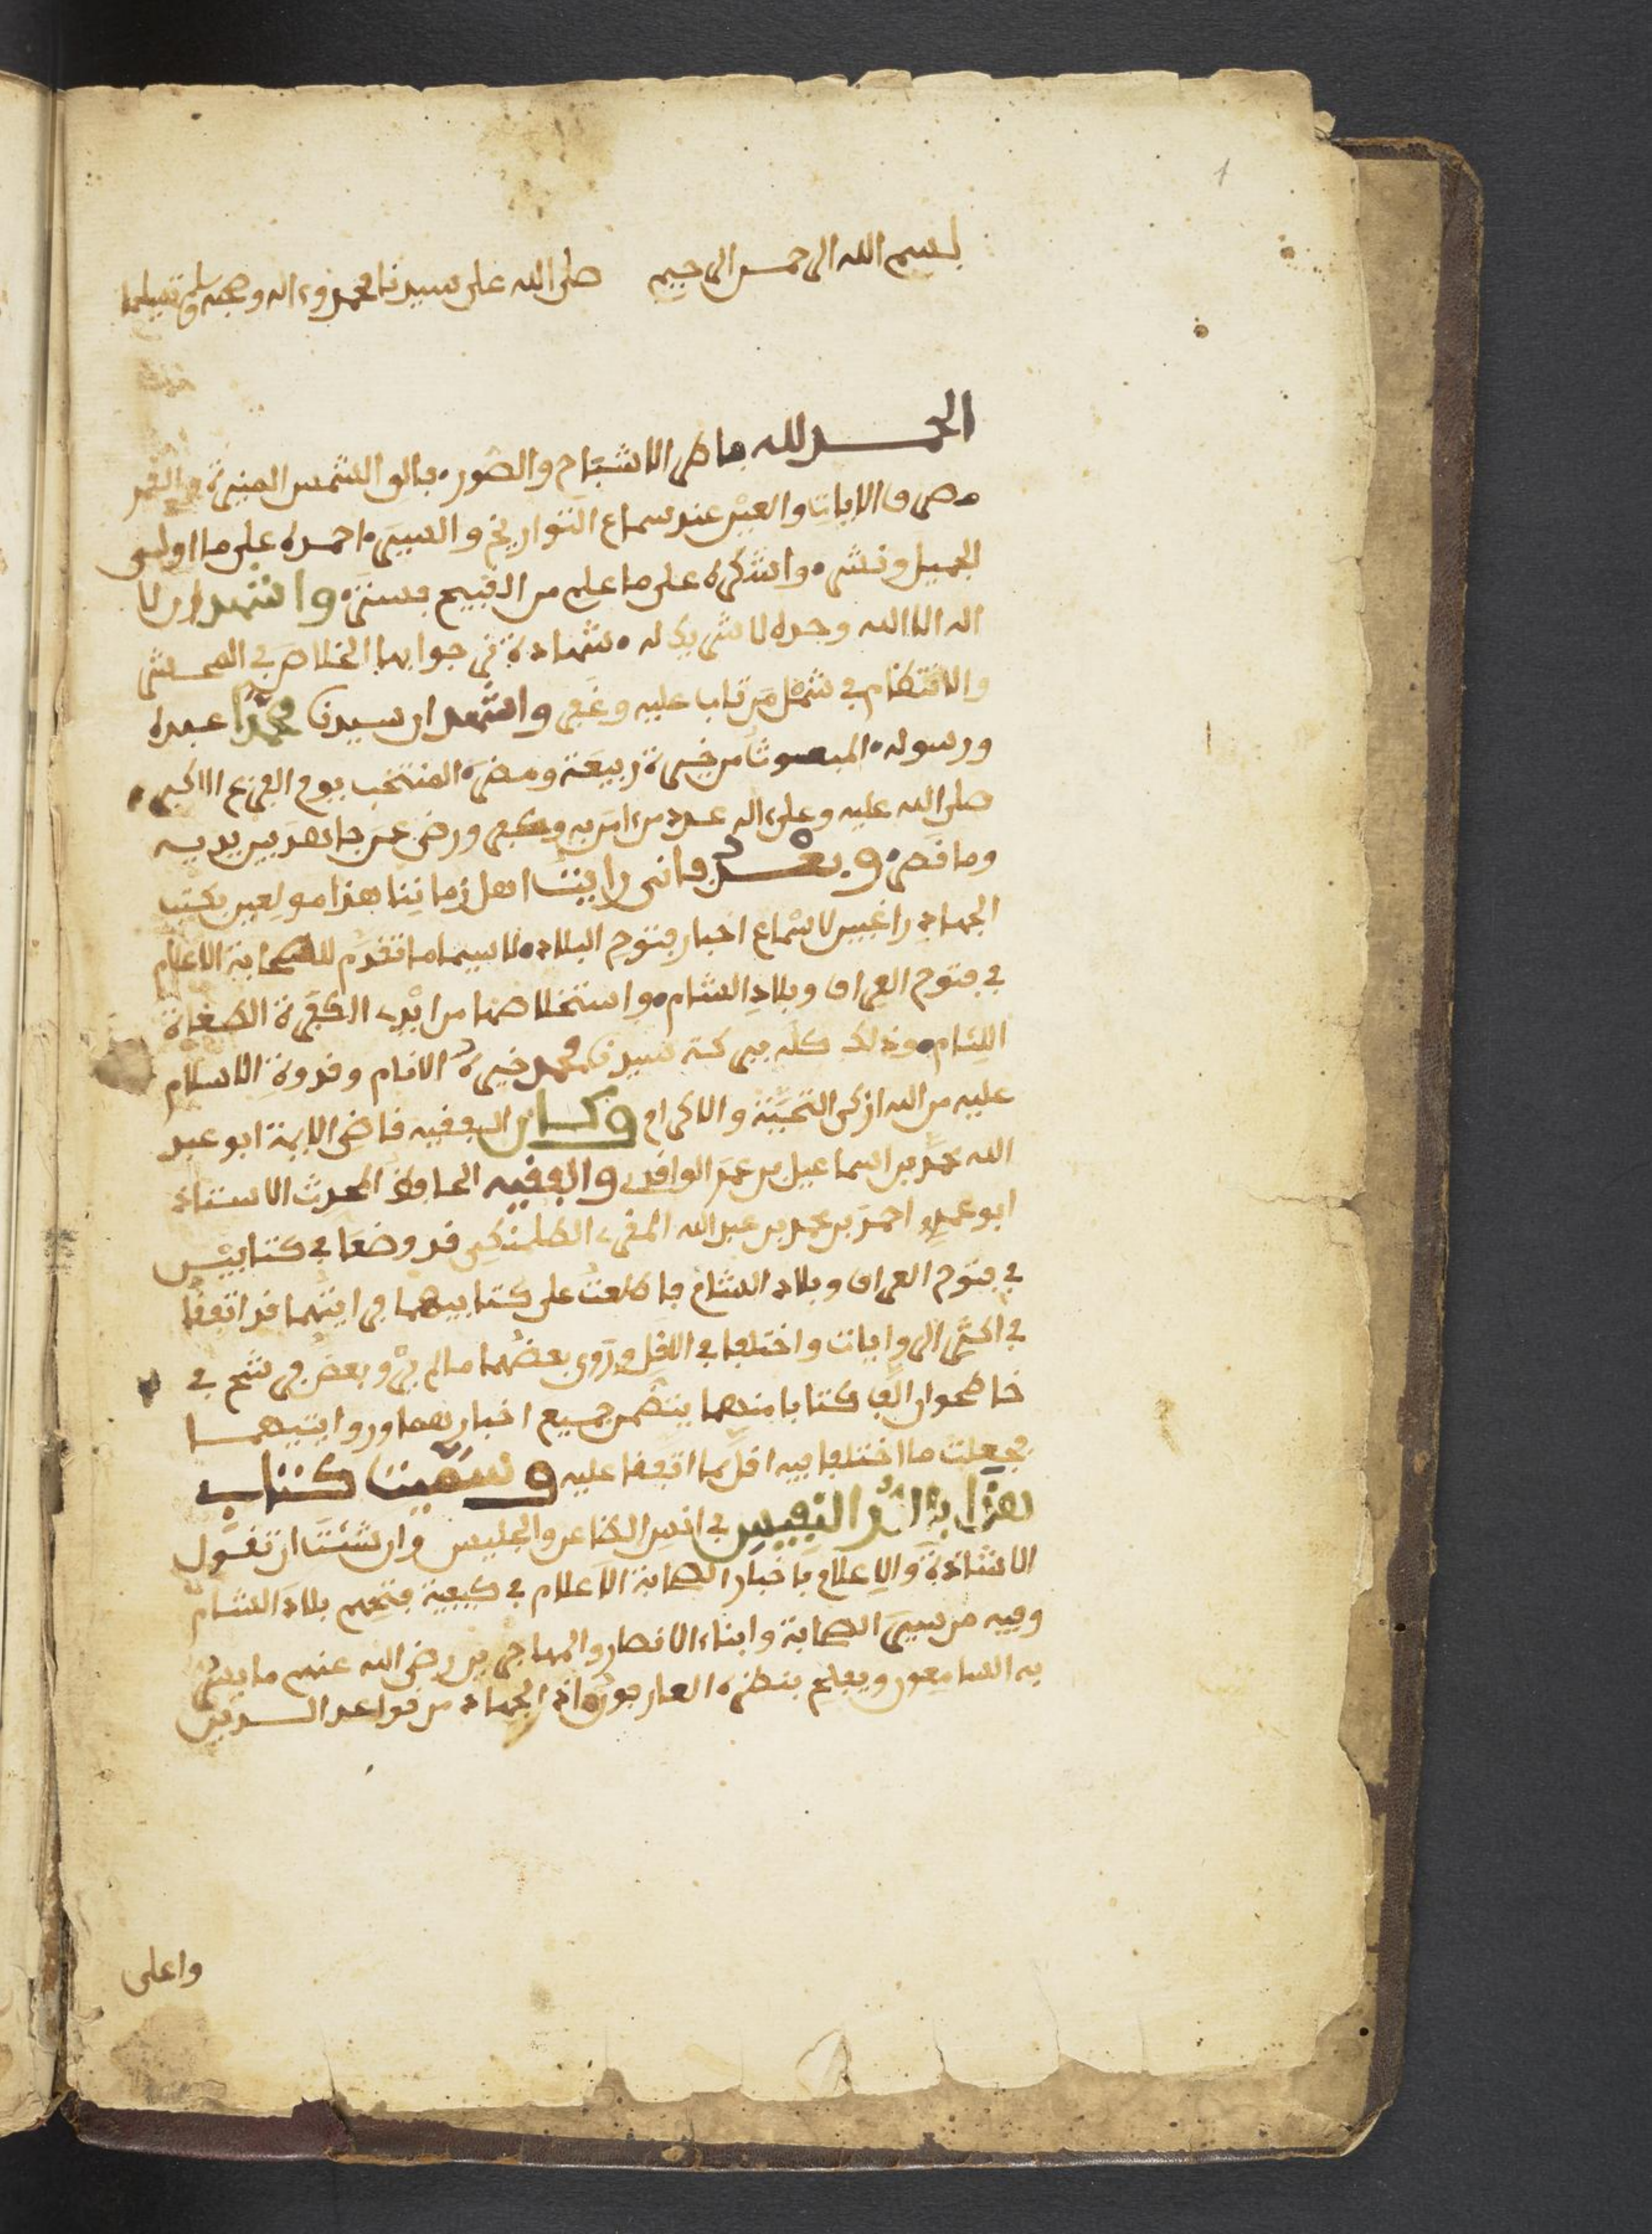 1
بسم الله الرحمن الرحيم صلى الله على سيدنا محمد وءاله وصحبه وسلم تسليما
الحمد لله فاطر الاشباح والصور، فالق الشمس المنيرة والقمر
مصرف الايات والعبر عند سماع التواريخ والسير، احمده على ما اولى
الجميل ونشر، واشكره على ما علم من القبيح فستر، واشهد ان لا
اله الا الله وحده لا شريك له، شهادة نرجوا بها الخلاص في المحشر
والانتظام في شمل من تاب عليه وغفر واشهد ان سيدنا محمدا عبده
ورسوله، المبعوث من خيرة ربيعة ومضر، المنتخب يوم الفزع الاكبر،
صلى الله عليه وعلى اله عدد من امن به وكفر ورضي عمن جاهد بين يديه
وما قصر، وبعد فاني رايت اهل زماننا هذا مولعين بكتب
الجهاد راغبين لاسماع اخبار فتوح البلاد، لا سيما ما تقدم للصحابة الاعلام
في فتوح العراق وبلاد الشام، واستخلاصها من ايدي الكفرة الطغاة
اللئام، وذلك كله ببركة سيدنا محمد خيرة الانام وقدوة الاسلام
عليه من الله ازكى التحية والاكرام وكان الفقيه قاضي الايمة ابو عبد
الله محمد بن اسماعيل بن عمر الواقدي والفقيه الحافظ المحدث الاستاذ
ابو عمر احمد بن محمد بن عبد الله المقرىء الطلمنكي قد وضعا في كتابين
في فتوح العراق وبلاد الشام فاطلعت على كتابيهما فرايتهما قد اتفقا
في اكثر الروايات واختلفا في الاقل وروى بعضهما ما لم يرو بعض فرشح في
خاطري ان الف كتابا منهما يتضمن جميع اخبارهما وروايتيهما
فجعلت ما اختلفا فيه اقل مما اتفقا عليه وسميت كتاب
هذا بالدر النفيس في انس الظاعن والجليس وان شئت ان تقول
الاشادة والاعلام باخبار الصحابة الاعلام في كيفية فتحهم بلاد الشام
وفيه من سير الصحابة وابناء الانصار والمهاجرين رضي الله عنهم ما يسر
به السامعون ويعلم بنظره العارفون، اذ الجهاد من قواعد الدين
واعلى